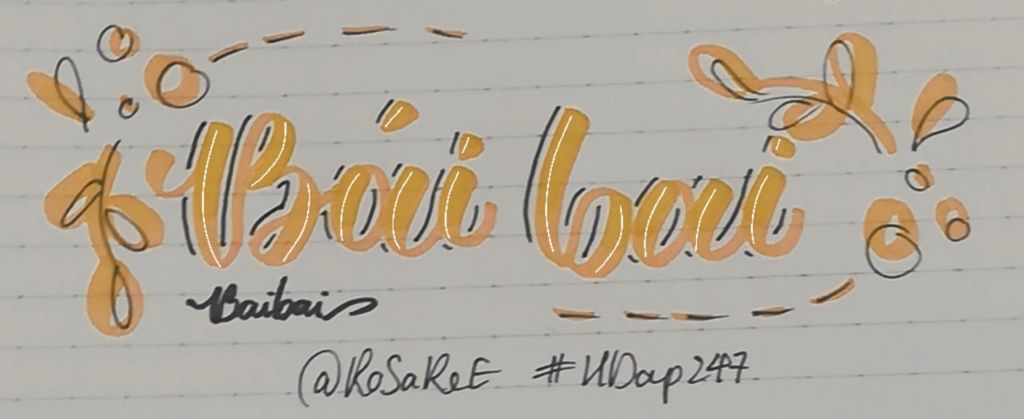 Bái bai
Baibai
@RoSaReE #HDap247